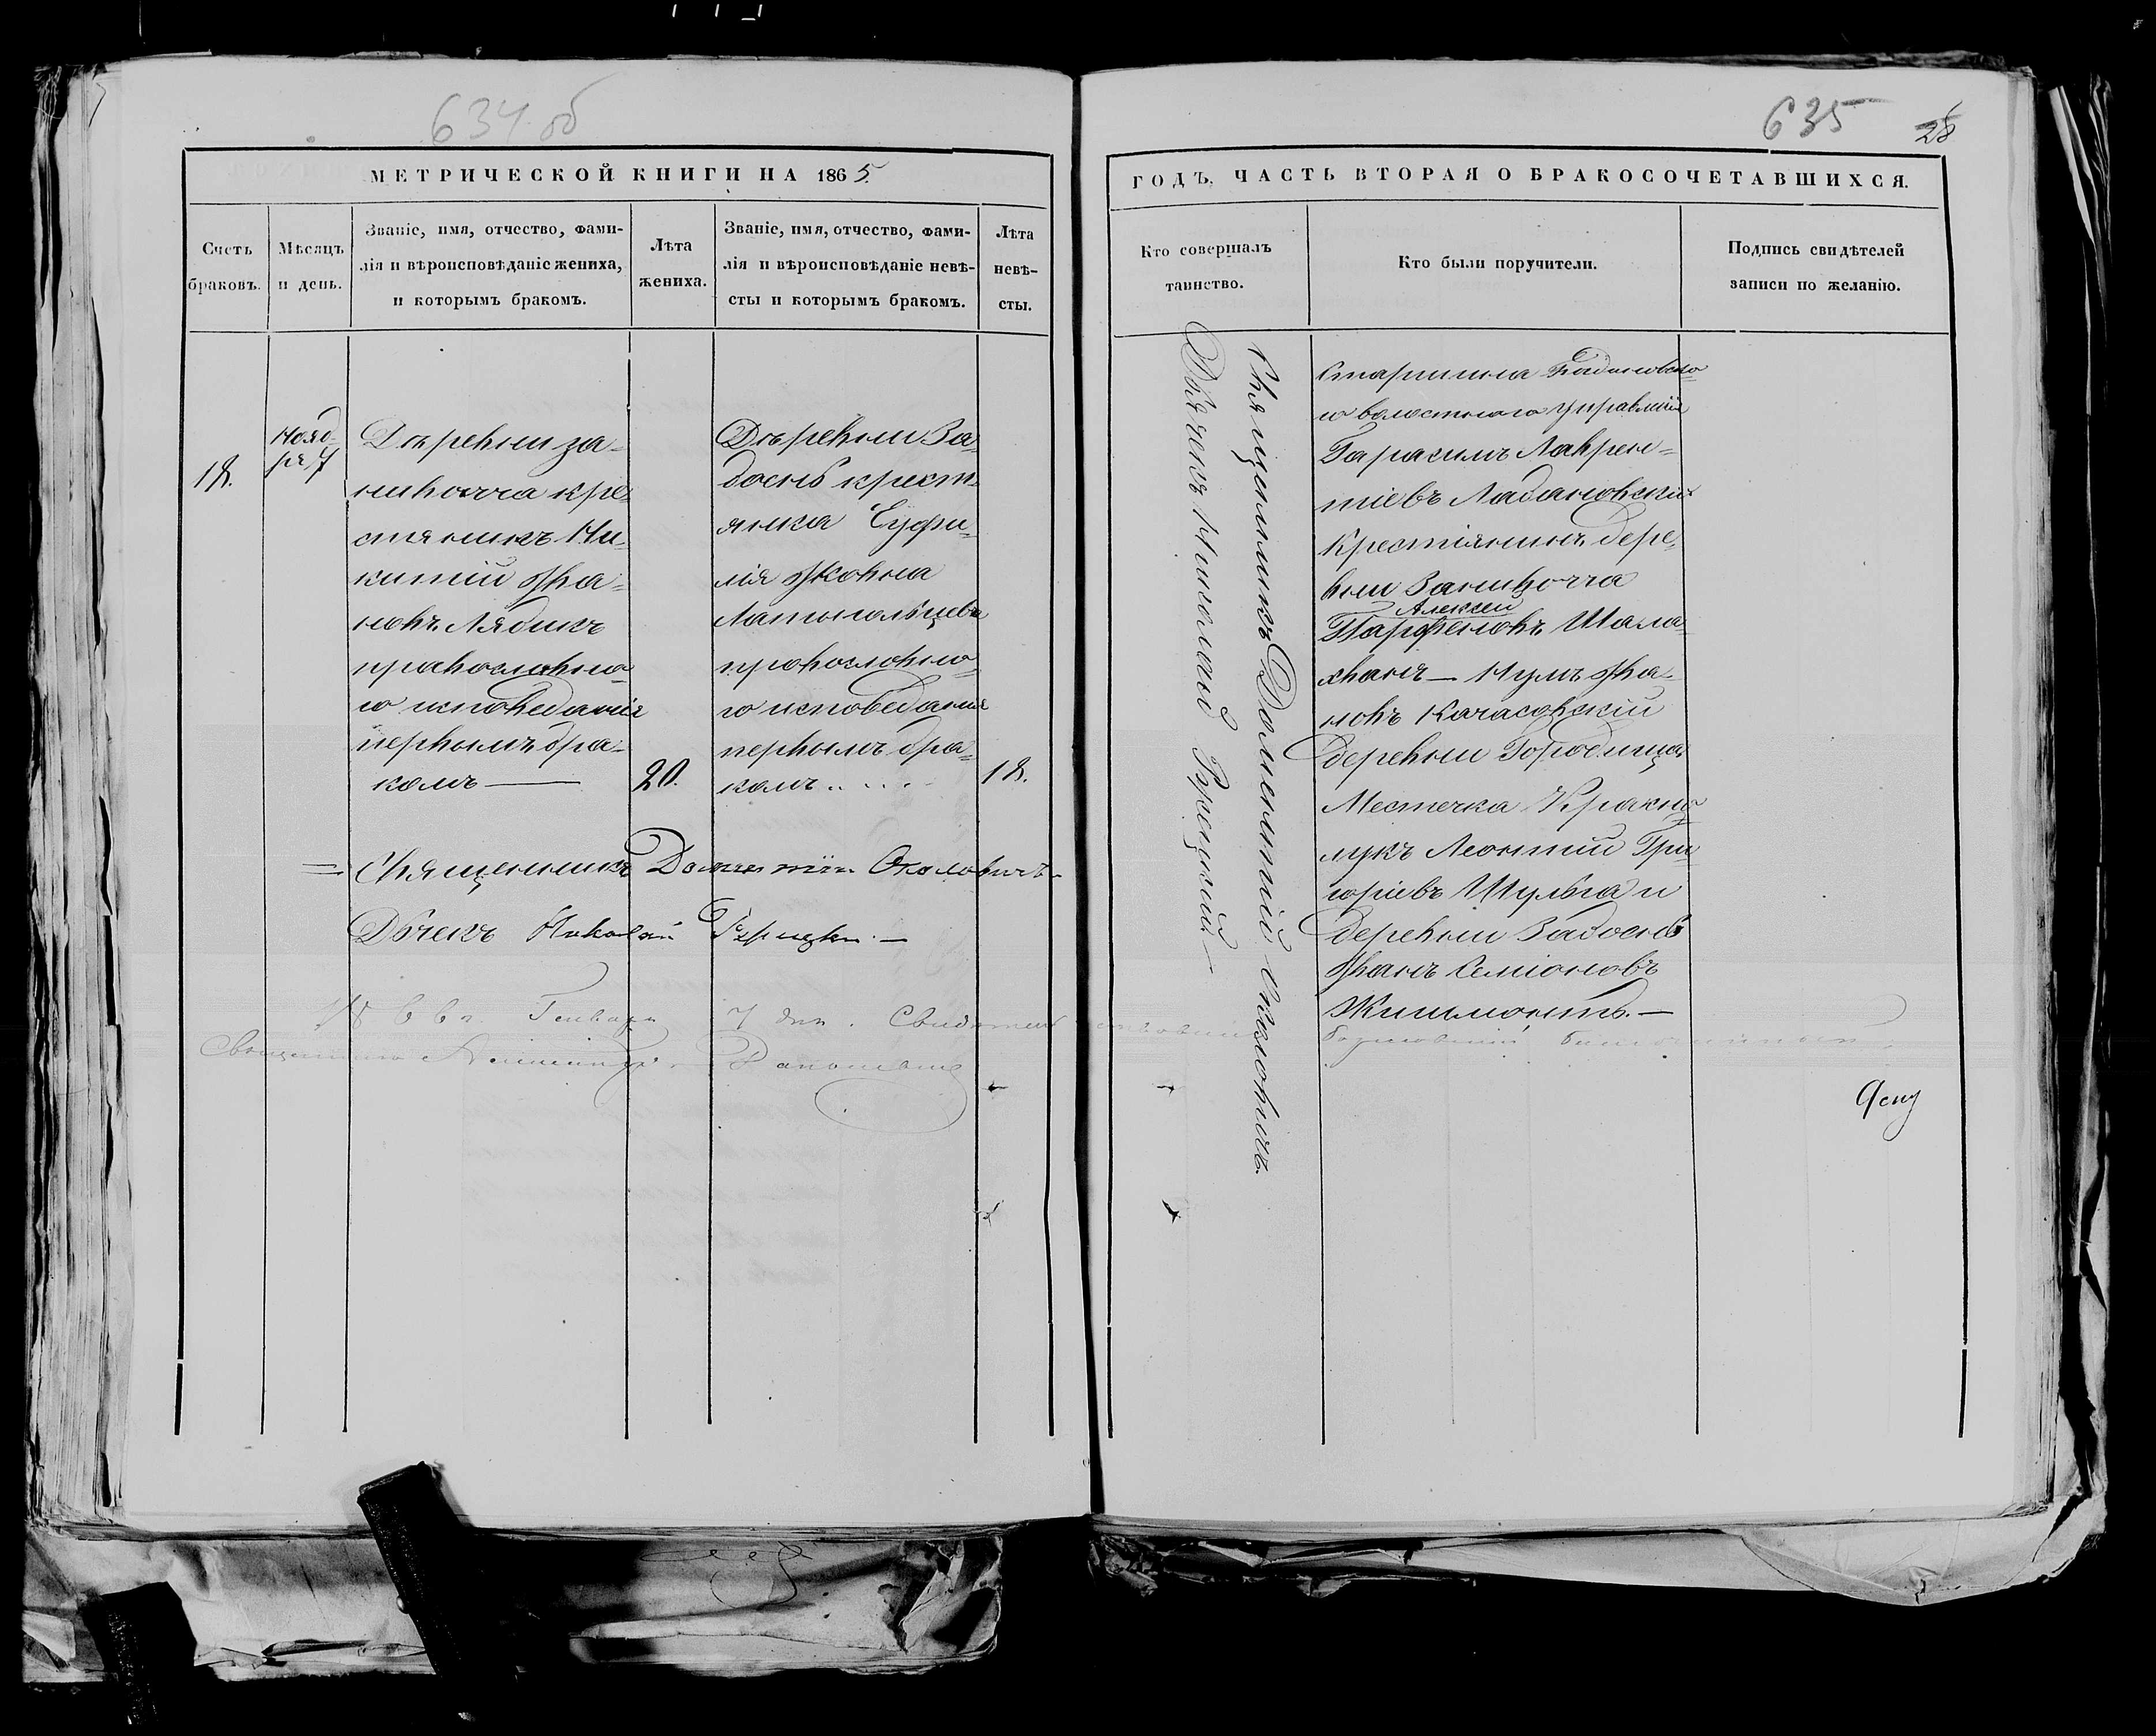 634 об
МЕТРИЧЕСКОЙ КНИГИ НА 1865
Счетъ браковъ.
Мѣсяцъ и день.
Званіе, имя, отчество, фами-
лія и вѣроисповѣданіе жениха,
и которымъ бракомъ.
Лѣта жениха.
Званіе, имя, отчество, фами-
лія и вѣроисповѣданіе невѣ-
сты и которымъ бракомъ.
Лѣта невѣ-
сты.
18.
Нояб-
ря 7
Дѣревни за-
нивочча кре-
стянинъ Ни-
китій Іва-
новъ Лядикъ
православно-
го исповеданія
первымъ бра-
комъ —
20.
Дѣревни За-
доснѣ крест-
янка Еуфи-
мія Яковна
православно-
го исповеданія
первымъ бра-
комъ
18.
Священникъ Дометій Околовичъ
Дьячекъ Николай
1866 г. Генваря 7 дня.
635
28
ГОДЪ, ЧАСТЬ ВТОРАЯ О БРАКОСОЧЕТАВШИХСЯ.
Кто совершалъ
таинство.
Кто были поручители.
Подпись свидѣтелей
записи по желанію.
Священникъ Дометій Околовичъ.
Дьячекъ Николай
Старшина
го волостнаго управленія
Гарасимъ Лаврен-
тіевъ Лабановскій
крестіянинъ дере-
вни Занивочча
Алексей
Парфеновъ Шала-
хванъ — Нумъ Ива-
новъ Качасовскій
деревни Городища
Местечка Красно-
лукъ Леонтій Гри-
горіевъ Шульга и
деревни Задоснѣ
Іванъ Семіоновъ